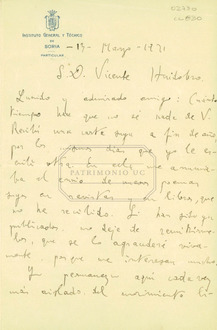 INSTITUTO GENERAL Y TÉCNICO
DE
SORIA
PARTICULAR
13 - Mayo - 1921
Sr D. Vicente Huidobro
Querido y admirado amigo: Cuánto
tiempo hace que no sé nada de V.
Recibí una carta suya a fin de año
por los mismos días que yo le es-
cribí otra. En ella me anuncia-
ba el envío de unos poemas
suyos en revistas y libros, que
no he recibido. Si han sido ya
publicados no deje de remitirme-
los, que se lo agradeceré viva-
mente, porque me interesan mucho.
Yo permanezco aquí cada vez
más aislado del movimiento li-
PATRIMONIO UC